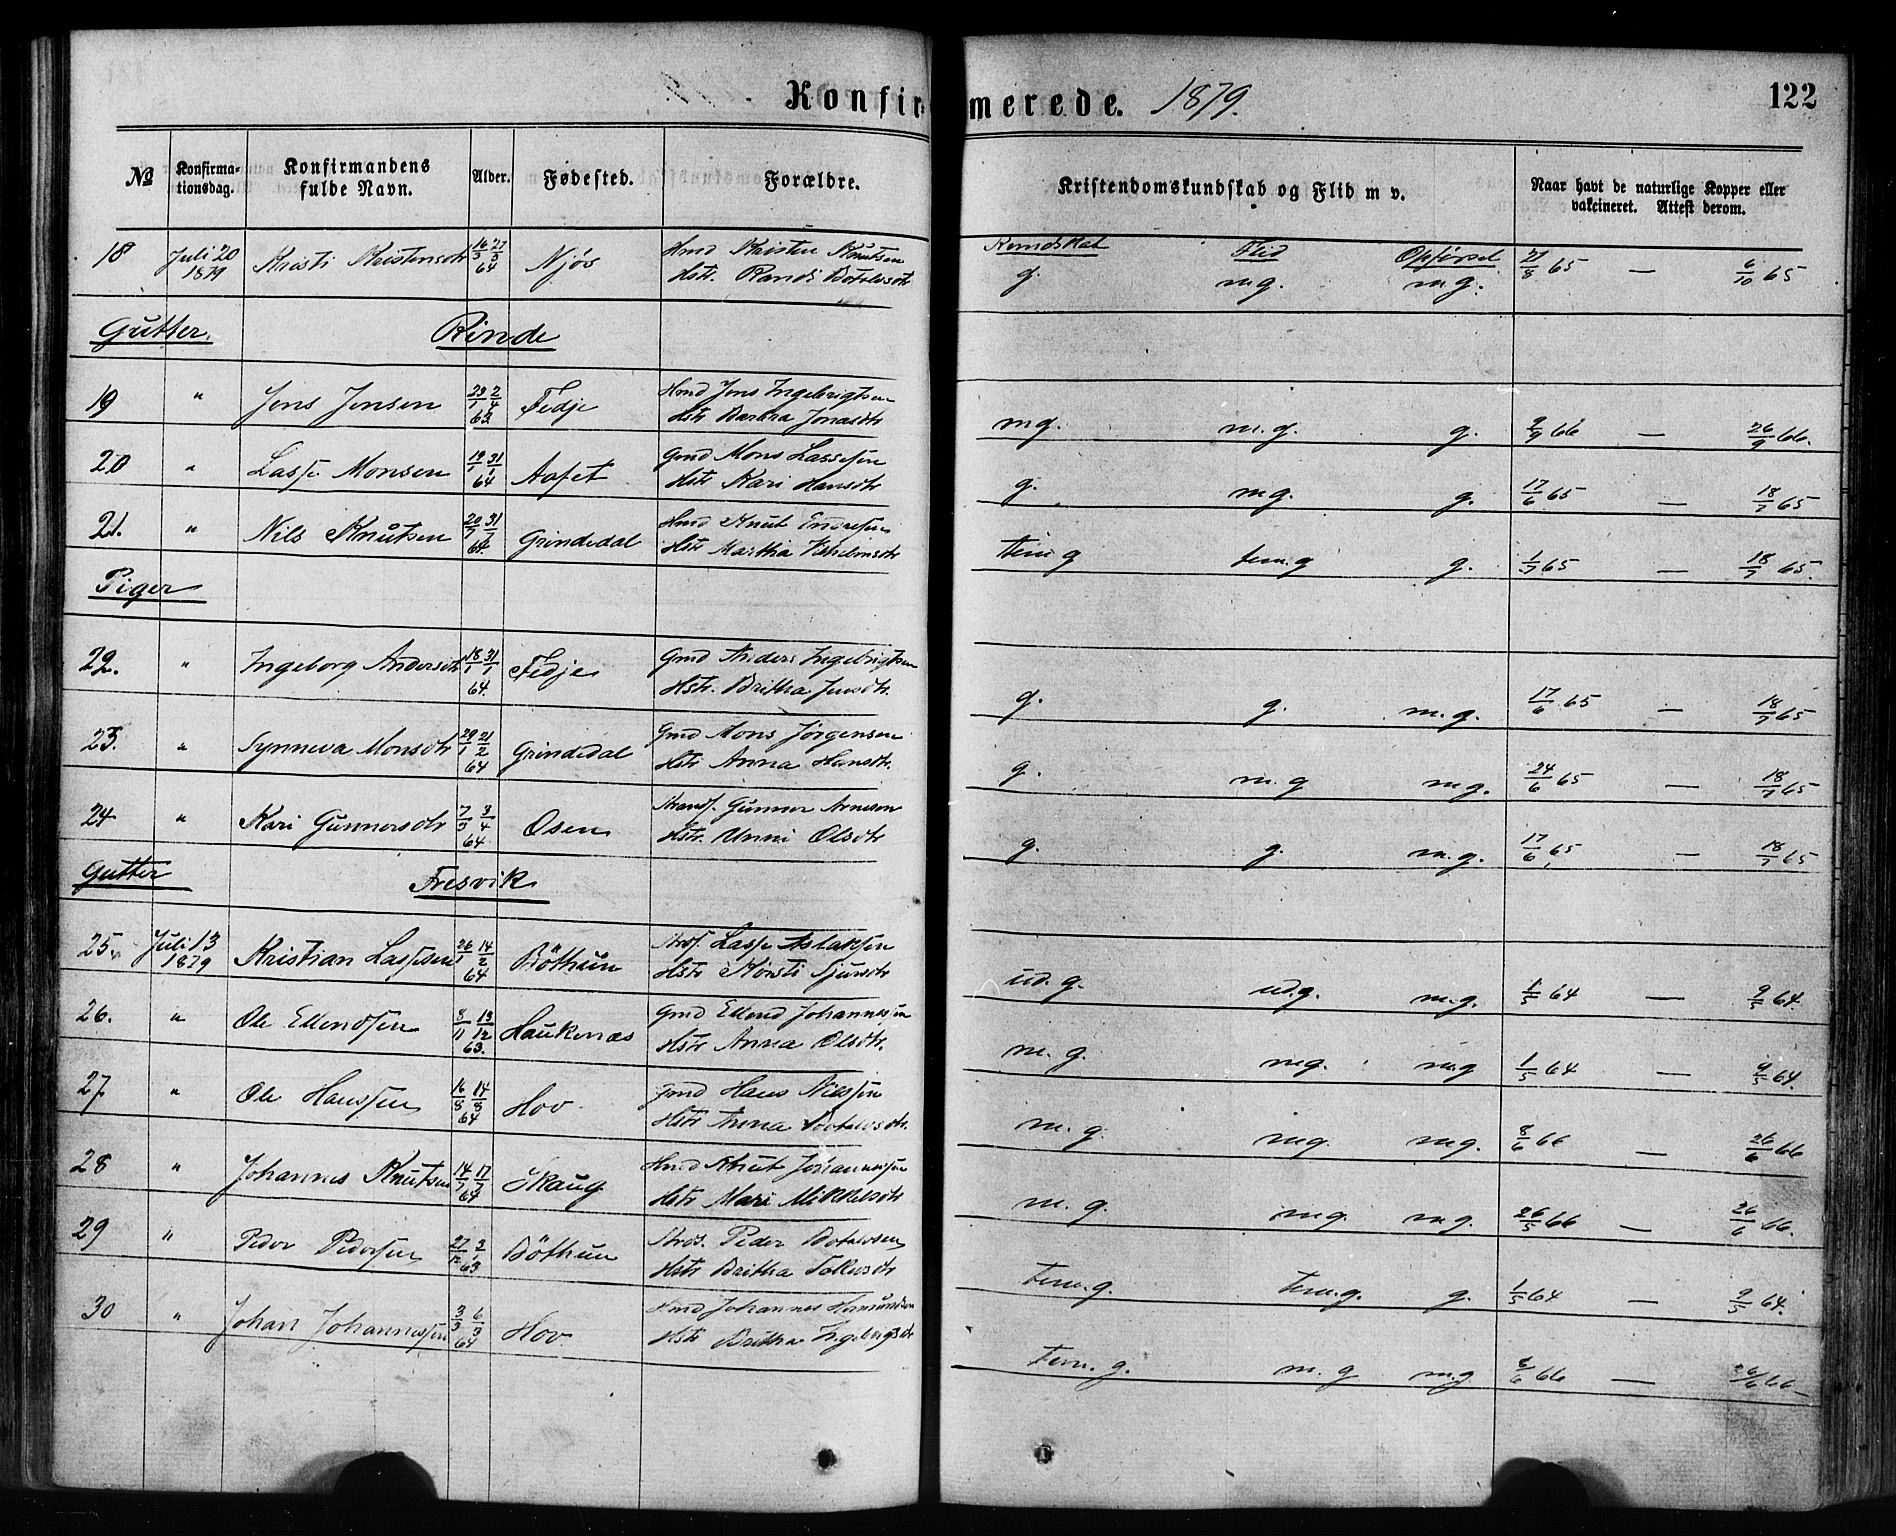 Konfirmerede. 1879. 122
No Konfirmationsdag. Konfirmandens fulde Navn. Alder. Fødested. Forældre. Kristendomskundskab og Flid m v. Naar havt de naturlige Kopper eller vakcineret. Attest derom.
Kundskab Flid Opførsel
18 Juli 20 1879 Kristi Kristensdtr 16/3 27/3 64 Njøs Hmd Kristen Knutsen g. mg. mg. 21/8 65 — 6/10 65
Hstr. Randi Botolvsdtr
Gutter. Rinde
19 " Jens Jensen 23/1 2/4 63. Fedje Hmd Jens Ingebrigtsen mg. m.g. g. 9/9 66 — 26/9 66.
Hstr Barbra Jonasdtr
20 " Lasse Monsen 19/1 31/1 64 Aafet Gmd Mons Lassesen g. mg. g. 17/6 65 — 18/7 65
Hstr Kari Hansdtr
21. " Nils Knutsen 20/7 31/7 64. Grindedal Hmd Knut Endresen tem g tem.g g. 1/7 65 — 18/7 65.
Hstr Martha
Piger
22. " Ingeborg Andersdtr 18/1 31/1 64. Fedje Gmd Anders Ingebrigtsen g. g. m.g. 17/6 65 — 18/7 65
Hstr. Britha Jensdtr.
23. " Synneva Monsdtr 29/1 21/2 64 Grindedal Gmd Mons Jørgensen g. m.g m.g. 24/6 65 — 18/7 65
Hstr Anna Hansdtr.
24 " Kari Gunnarsdtr 7/3 3/4 64 Osen Strands. Gunnar Arneson g. g. m.g. 17/6 65 — 18/7 65
Hstr. Unni Olsdtr
Gutter Fresvik
25. Juli 13 1879 Kristian Lassesen 26/1 14/2 64 Böthun Strds. Lasse Aslaksen ud.g. ud.g. m.g. 1/5 64 — 9/5 64.
Hstr Kirsti Sjursdtr
26. " Ole Ellendsen 8/11 13/12 63. Haukenæs Gmd Ellend Johannessen m.g. mg. mg 1/5 64 — 9/5 64.
Hstr Anna Olsdtr.
27 " Ole Hanssen 16/8 14/8 64 Hov Gmd Hans Nilssen m.g. mg. mg. 8/6 66 — 26/6 66
Hstr Anna Botolvsdtr.
28 " Johannes Knutsen 14/7 17/7 64 Skaug Hmd Knut Johannessen m.g. mg. mg. 26/5 66 — 26/6 66.
Hstr Mari Mikkelsdtr
29 " Peder Pedersen 27/12 3/1 63 Böthun Strds. Peder Botolvsen tem.g. tem.g. g. 1/5 64 — 9/5 64.
Hstr Britha
30 " Johan Johannessen 3/3 6/3 64 Hov. Hmd Johannes Hermundsen tem.g. m.g mg 8/6 66 — 26/6 66
Hstr Britha Ingebrigsdtr